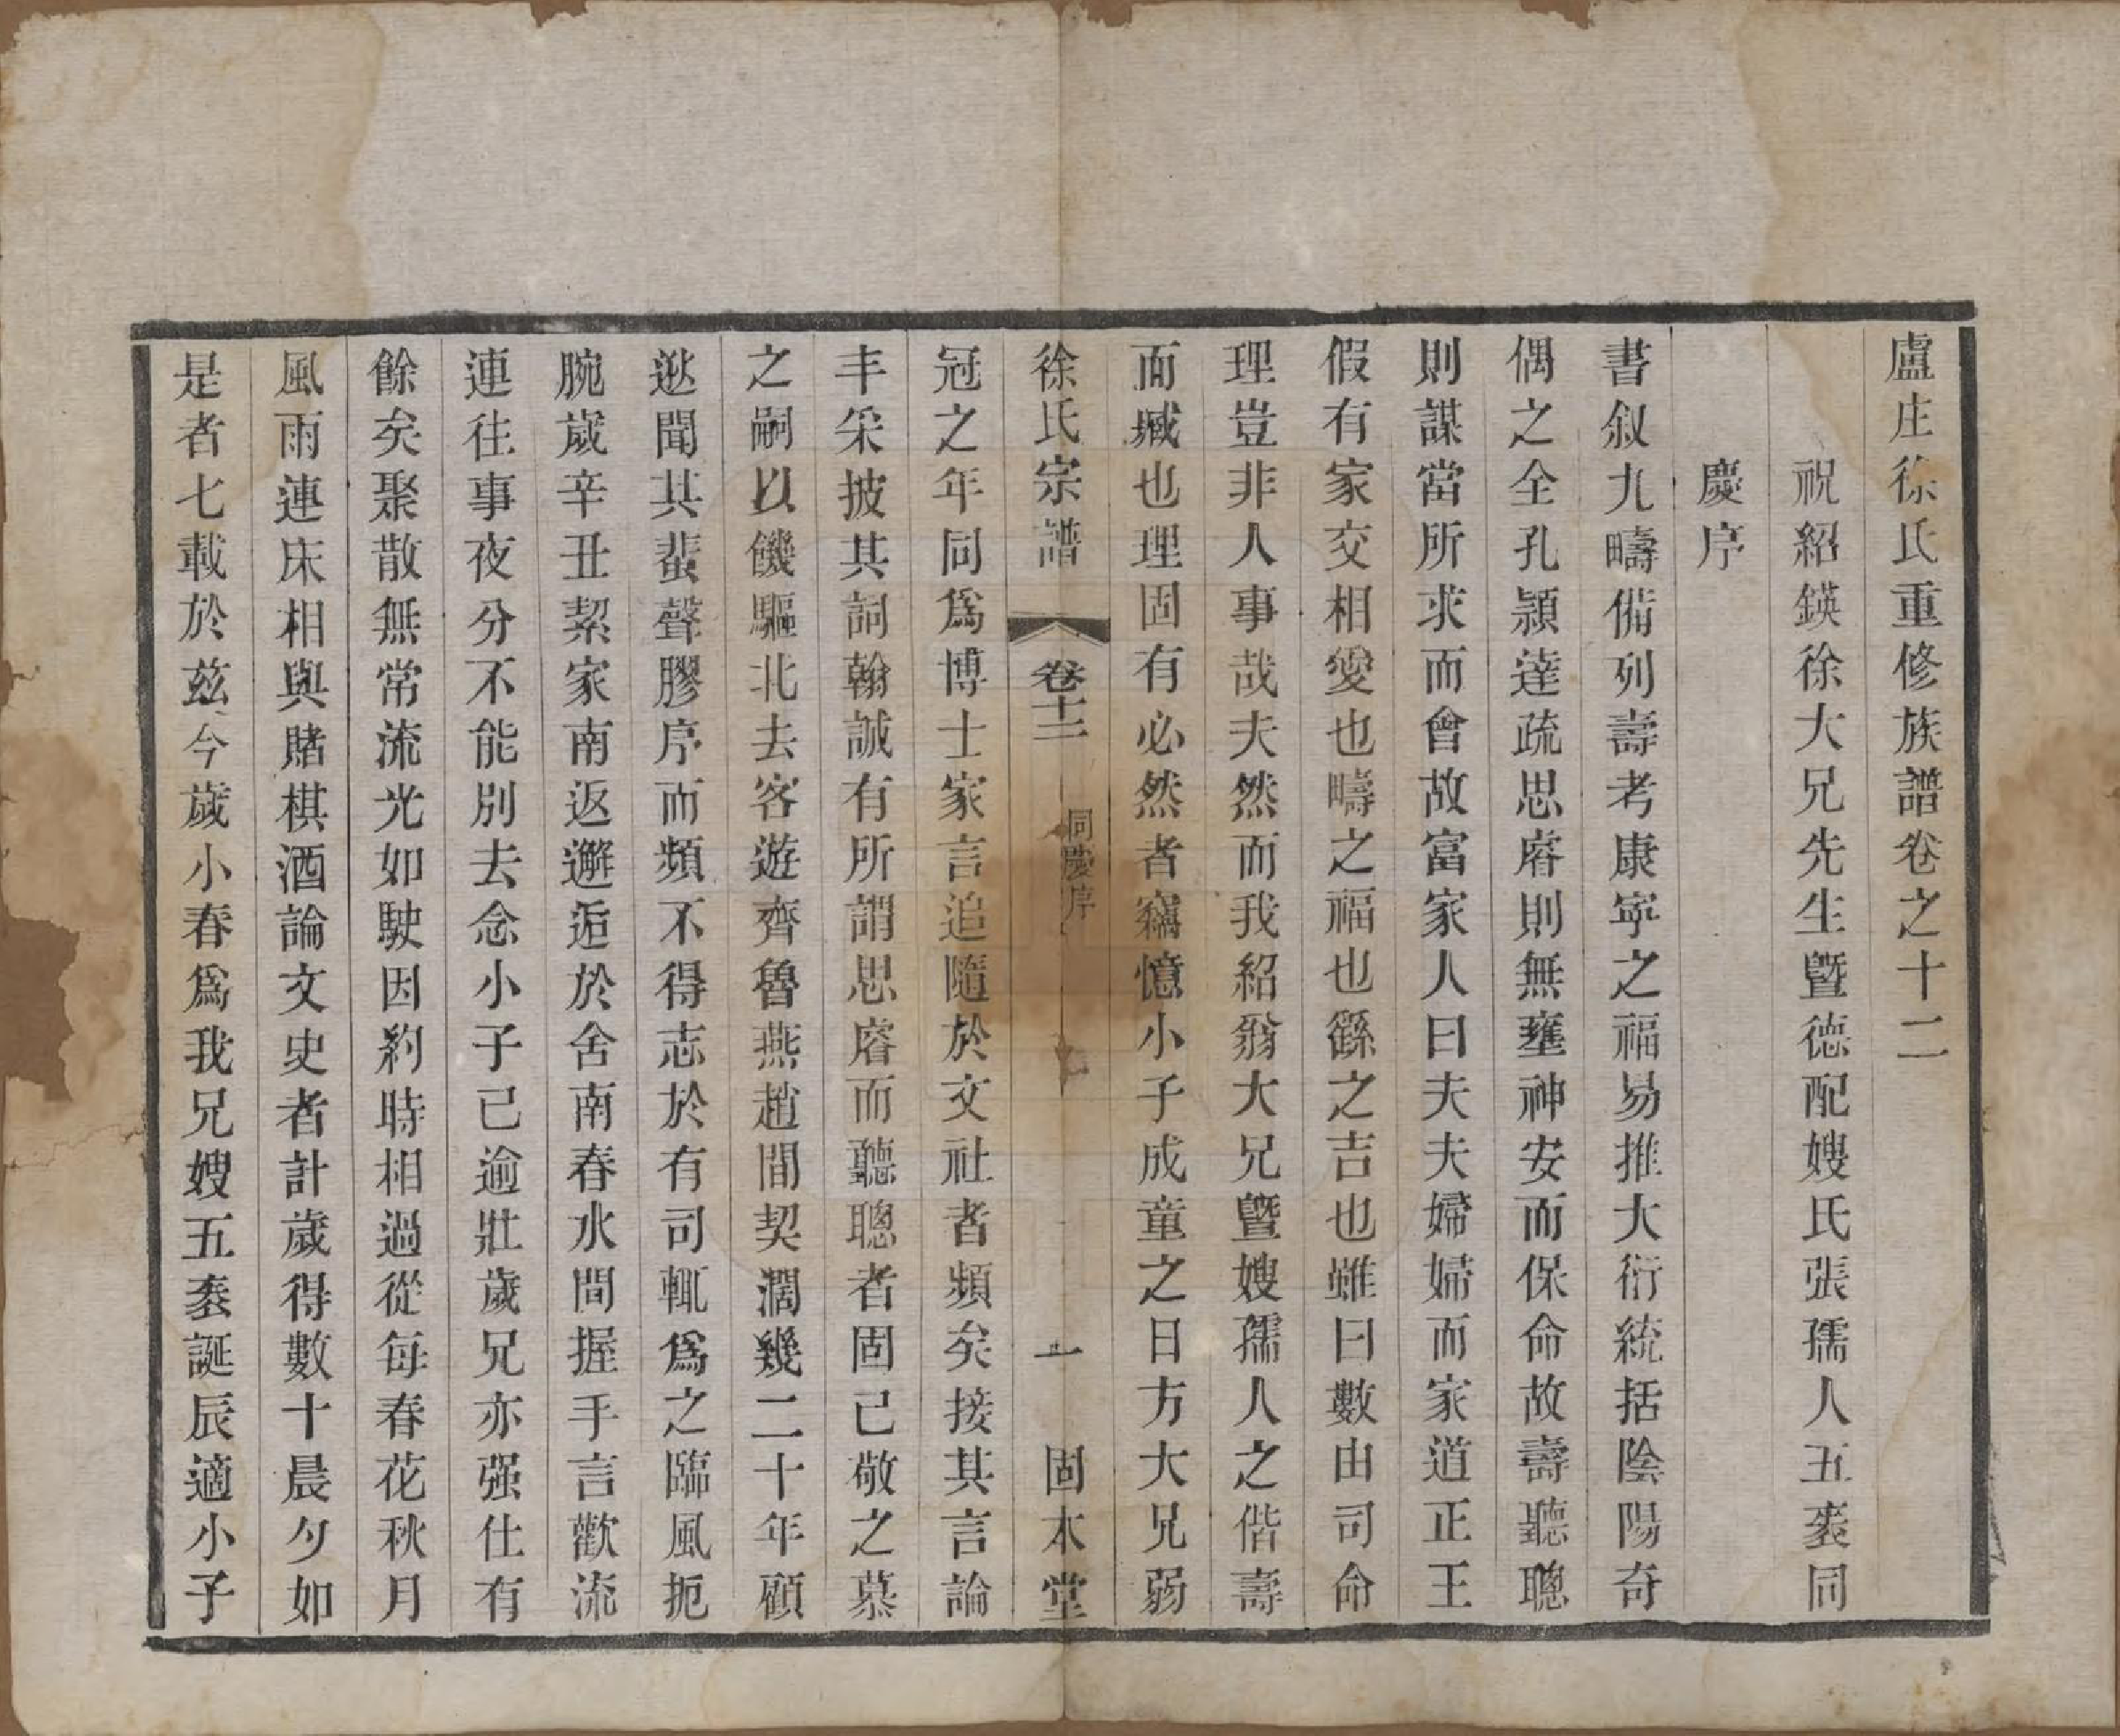 盧庄徐氏重修族譜卷之十二
祝紹鍈徐大兄先生暨德配嫂氏張孺人五袠同
慶序
書叙九疇備列壽考康寜之福易推大衍統括陰陽奇
偶之全孔頴達疏思睿則無壅神安而保命故壽聽聰
則謀當所求而會故富家人曰夫夫婦婦而家道正王
假有家交相愛也疇之福也繇之吉也雖曰數由司命
理豈非人事哉夫然而我紹翁大兄暨嫂孺人之偕壽
而臧也理固有必然者竊憶小子成童之日方大兄弱
徐氏宗譜
卷十二
同慶序
一
固本堂
冠之年同爲博士家言追隨於文社者頻矣接其言論
丰采披其詞翰誠有所謂思睿而聽聰者固已敬之慕
之嗣以饑驅北去客遊齊魯燕趙間契濶幾二十年顧
逖聞其蜚聲膠序而頻不得志於有司輒爲之臨風扼
腕歲辛丑絜家南返邂逅於舍南春水間握手言歡流
連往事夜分不能別去念小子已逾壯歲兄亦强仕有
餘矣聚散無常流光如駛因剎時相過從每春花秋月
風雨連床相與賭棋酒論文史者計歲得數十晨夕如
是者七載於兹今歲小春爲我兄嫂五袠誕辰適小子